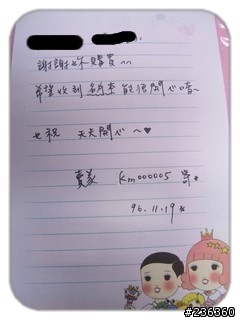 謝謝妳購買^^
希望收到鉤系能很開心唷~
也祝 天天開心~♥
賣家 km000005 筆*
96.11.19*
#236360